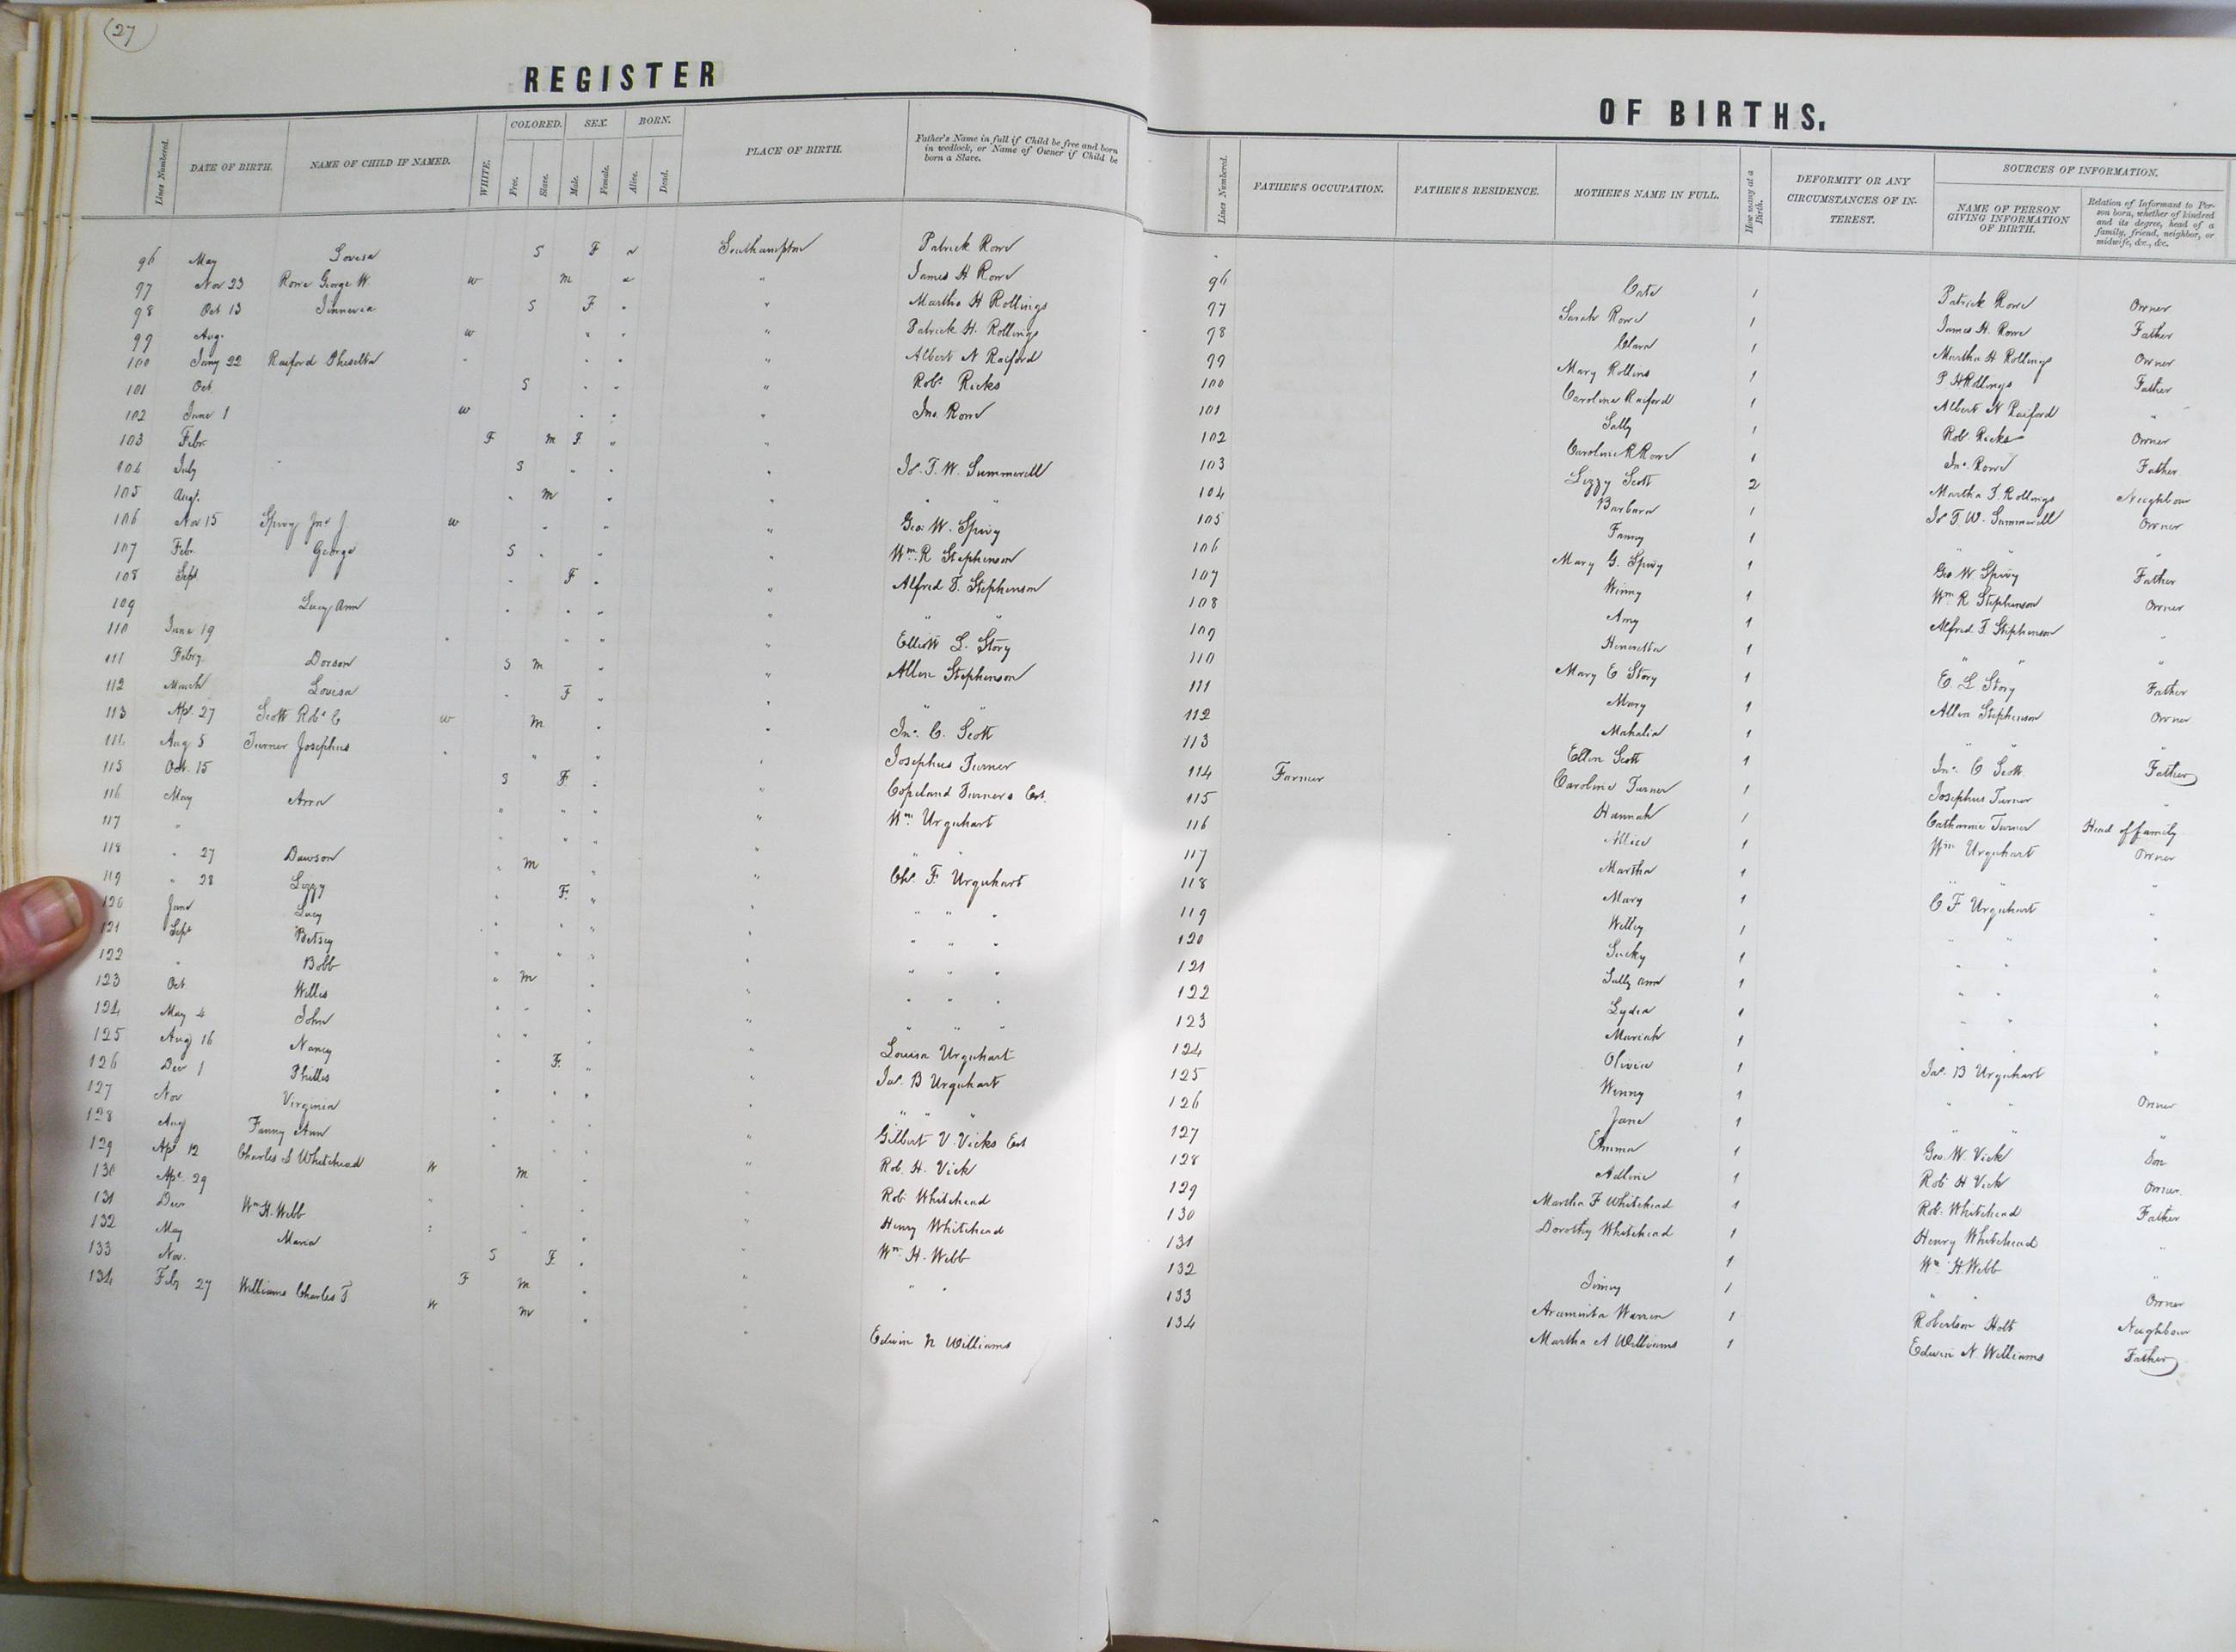 27
REGISTER
Lines Numbered. DATE OF BIRTH. NAME OF CHILD IF NAMED. WHITE. COLORED. Free. Slave. SEX. Male. Female. BORN. Alive. Dead. PLACE OF BIRTH. Father's Name in full if Child be free and born in wedlock, or Name of Owner if Child be born a Slave.
96 May Lovesa S F Southampton Patrick Rowe
97 Nov 23 Rowe George W. w m " James H Rowe
98 Oct 13 S F " Martha H Rollings
99 Aug. w " " " Patrick H. Rollings
100 Jany 22 Raiford " " " " Albert N Raiford
101 Oct. S " " " Robt Ricks
102 June 1 w " " " Jno. Rowe
103 Febr. F m F " "
104 July S " " " Js. T. W. Summerell
105 Aug. " m " " " "
106 Nov 15 Spivy Jno J w " " " Geo. W. Spivy
107 Feb. George S " " " Wm. R Stephenson
108 Sept. " F " " Alfred F. Stephenson
109 Lucy Ann " " " " " "
110 June 19 " " " " Elliott L. Story
111 Feby. Dorson S m " " Allen Stephenson
112 March Lovesa " F " " " "
113 Apl. 27 Scott Robt C w m " " Jno. C. Scott
114 Aug 5 Turner Josephus " " " " Josephus Turner
115 Oct. 15 S F " " Copeland Turners Est.
116 May Ann " " " " Wm. Urquhart
117 " " " " " " "
118 " 27 Dawson " m " " Ch. F. Urquhart
119 " 28 Lizzy " F. " " " " "
120 June Lucy " " " " " " "
121 Sept Betsey " " " " " " "
122 " Bobb " m " " " " "
123 Oct Willis " " " " " " "
124 May 4 John " " " " Louisa Urquhart
125 Aug 16 Nancy " F. " " Jas. B Urquhart
126 Dec 1 Phillis " " " " " " "
127 Nov Virginia " " " " Gilbert V. Vicks Est
128 Aug Fanny Ann " " " " Rob. H. Vick
129 Ap 12 Charles S Whitehead W m " " Rob. Whitehead
130 Apl. 29 " " " " Henry Whitehead
131 Decr Wm H. Webb " " " " Wm. H. Webb
132 May Maria S F. " " " "
133 Nov. F m " "
134 Feby 27 Williams Charles T W m " " Edwin N Williams
OF BIRTHS.
Lines Numbered. FATHER'S OCCUPATION. FATHER'S RESIDENCE. MOTHER'S NAME IN FULL. How many at a Birth. DEFORMITY OR ANY CIRCUMSTANCES OF INTEREST. SOURCES OF INFORMATION. NAME OF PERSON GIVING INFORMATION OF BIRTH. Relation of Informant to Person born, whether of kindred and its degree, head of a family, friend, neighbor, or midwife, &c., &c.
96 Cate 1 Patrick Rowe Owner
97 Sarah Rowe 1 James H. Rowe Father
98 Clara 1 Martha H Rollings Owner
99 Mary Rollins 1 P H Rollings Father
100 Caroline Raiford 1 Albert N Raiford "
101 Sally 1 Rob. Ricks Owner
102 Caroline R Rowe 1 Jno. Rowe Father
103 Lizzy Scott 2 Martha T. Rollings Neighbour
104 Barbara 1 Js T. W. Summerell Owner
105 Fanny 1 " " "
106 Mary G. Spivy 1 Geo W Spivy Father
107 Winny 1 Wm. R Stephenson Owner
108 Amy 1 Alfred F Stephenson "
109 Henrietta 1 " " "
110 Mary E Story 1 E. L Story Father
111 Mary 1 Allen Stephenson Owner
112 Mahalia 1 " " "
113 Ellen Scott 1 Jno. C Scott Father
114 Farmer Caroline Turner 1 Josephus Turner "
115 Hannah 1 Catharine Turner Head of family
116 Allice 1 Wm Urquhart Owner
117 Martha 1 " " "
118 Mary 1 C F Urquhart "
119 Willey 1 " " "
120 Sucky 1 " " "
121 Sally Ann 1 " " "
122 Lydia 1 " " "
123 Mariah 1 " " "
124 Olivia 1 Jas. B Urquhart
125 Winny 1 " " Owner
126 Jane 1 " " "
127 Emma 1 Geo. W. Vick Son
128 Adline 1 Rob H Vick Owner.
129 Martha F Whitehead 1 Rob. Whitehead Father
130 Dorothy Whitehead 1 Henry Whitehead "
131 1 Wm H. Webb "
132 Jinny 1 " " Owner
133 Araminta Warren 1 Robertson Holt Neighbour
134 Martha A Williams 1 Edwin N. Williams Father